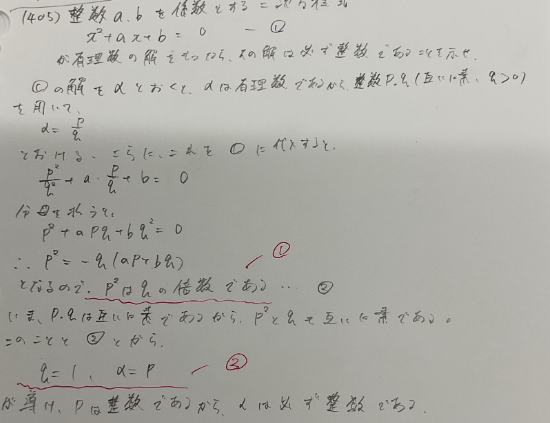 (405) 整数a.bを係数とする二次方程式
x²+ax+b=0 ー①
が有理数の解をもつなら、その解は必ず整数であることを示せ.
①の解をαとおくと、αは有理数であるから、整数P.q(互いに素、q>0)
を用いて、
α=p/q
とおける、さらに、これを①に代入すると、
p²/q²+a・p/q+b=0
分母を払うと、
p²+apq+bq²=0
∴ p²=-q(ap+bq)
①
となるので、p²はqの倍数である… ②
いま、p.qは互いに素であるから、p²とqも互いに素である。
このことと②とから、
q=1、α=P
②
が導け、Pは整数であるから、αは必ず整数である.